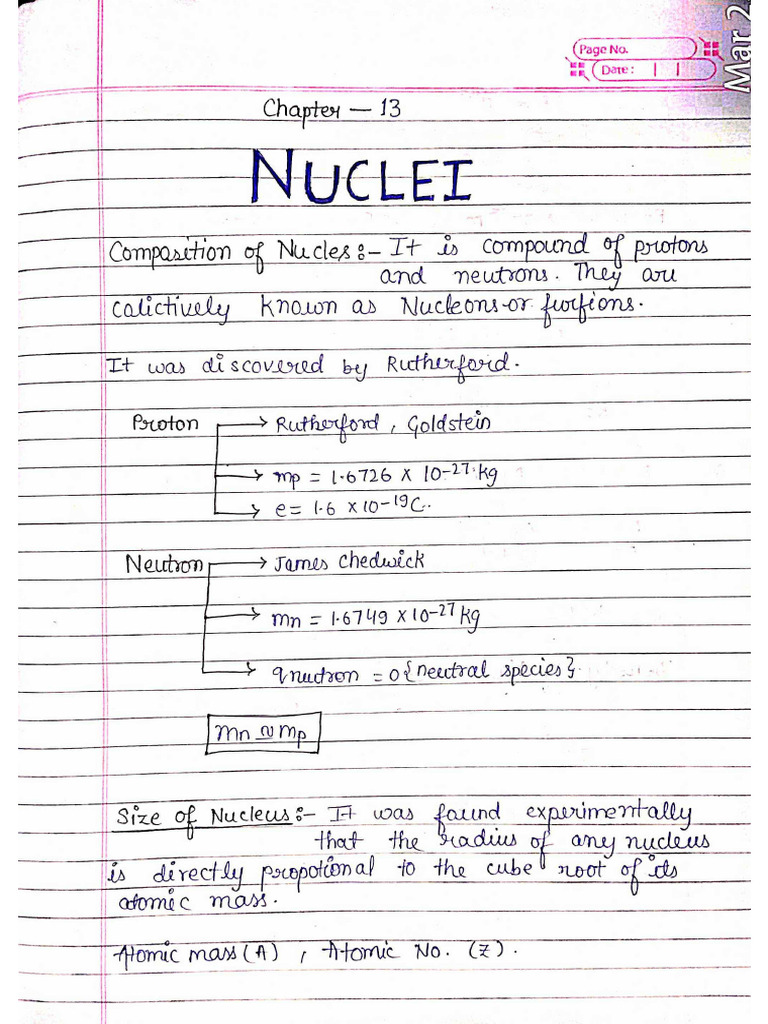 Mar 2
Page No.
Date: | |
Chapter — 13
NUCLEI
Composition of Nucles:- It is compound of protons
and neutrons. They are
calictively known as Nucleons or
It was discovered by Rutherford.
Proton → Rutherford, Goldstein
→ mp = 1.6726 × 10-27 kg
→ e = 1.6 × 10-19 C.
Neutron → James Chedwick
→ mn = 1.6749 × 10-27 kg
→ qnutron = 0 {neutral species}
mn ≈ mp
Size of Nucleus:- It was found experimentally
that the radius of any nucleus
is directly propotional to the cube root of its
atomic mass.
Atomic mass (A) , Atomic No. (Z).